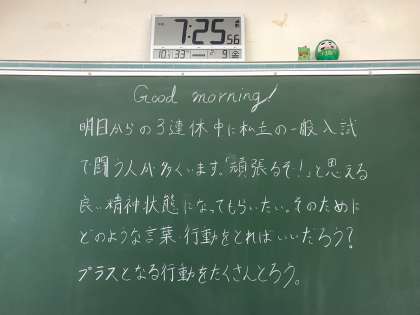 7:25 56
2 9 金
Good morning!
明日からの3連休中に私立の一般入試
で闘う人が多くいます。「頑張るぞ!」と思える
良い精神状態になってもらいたい。そのために
どのような言葉・行動をとればいいだろう?
プラスとなる行動をたくさんとろう。